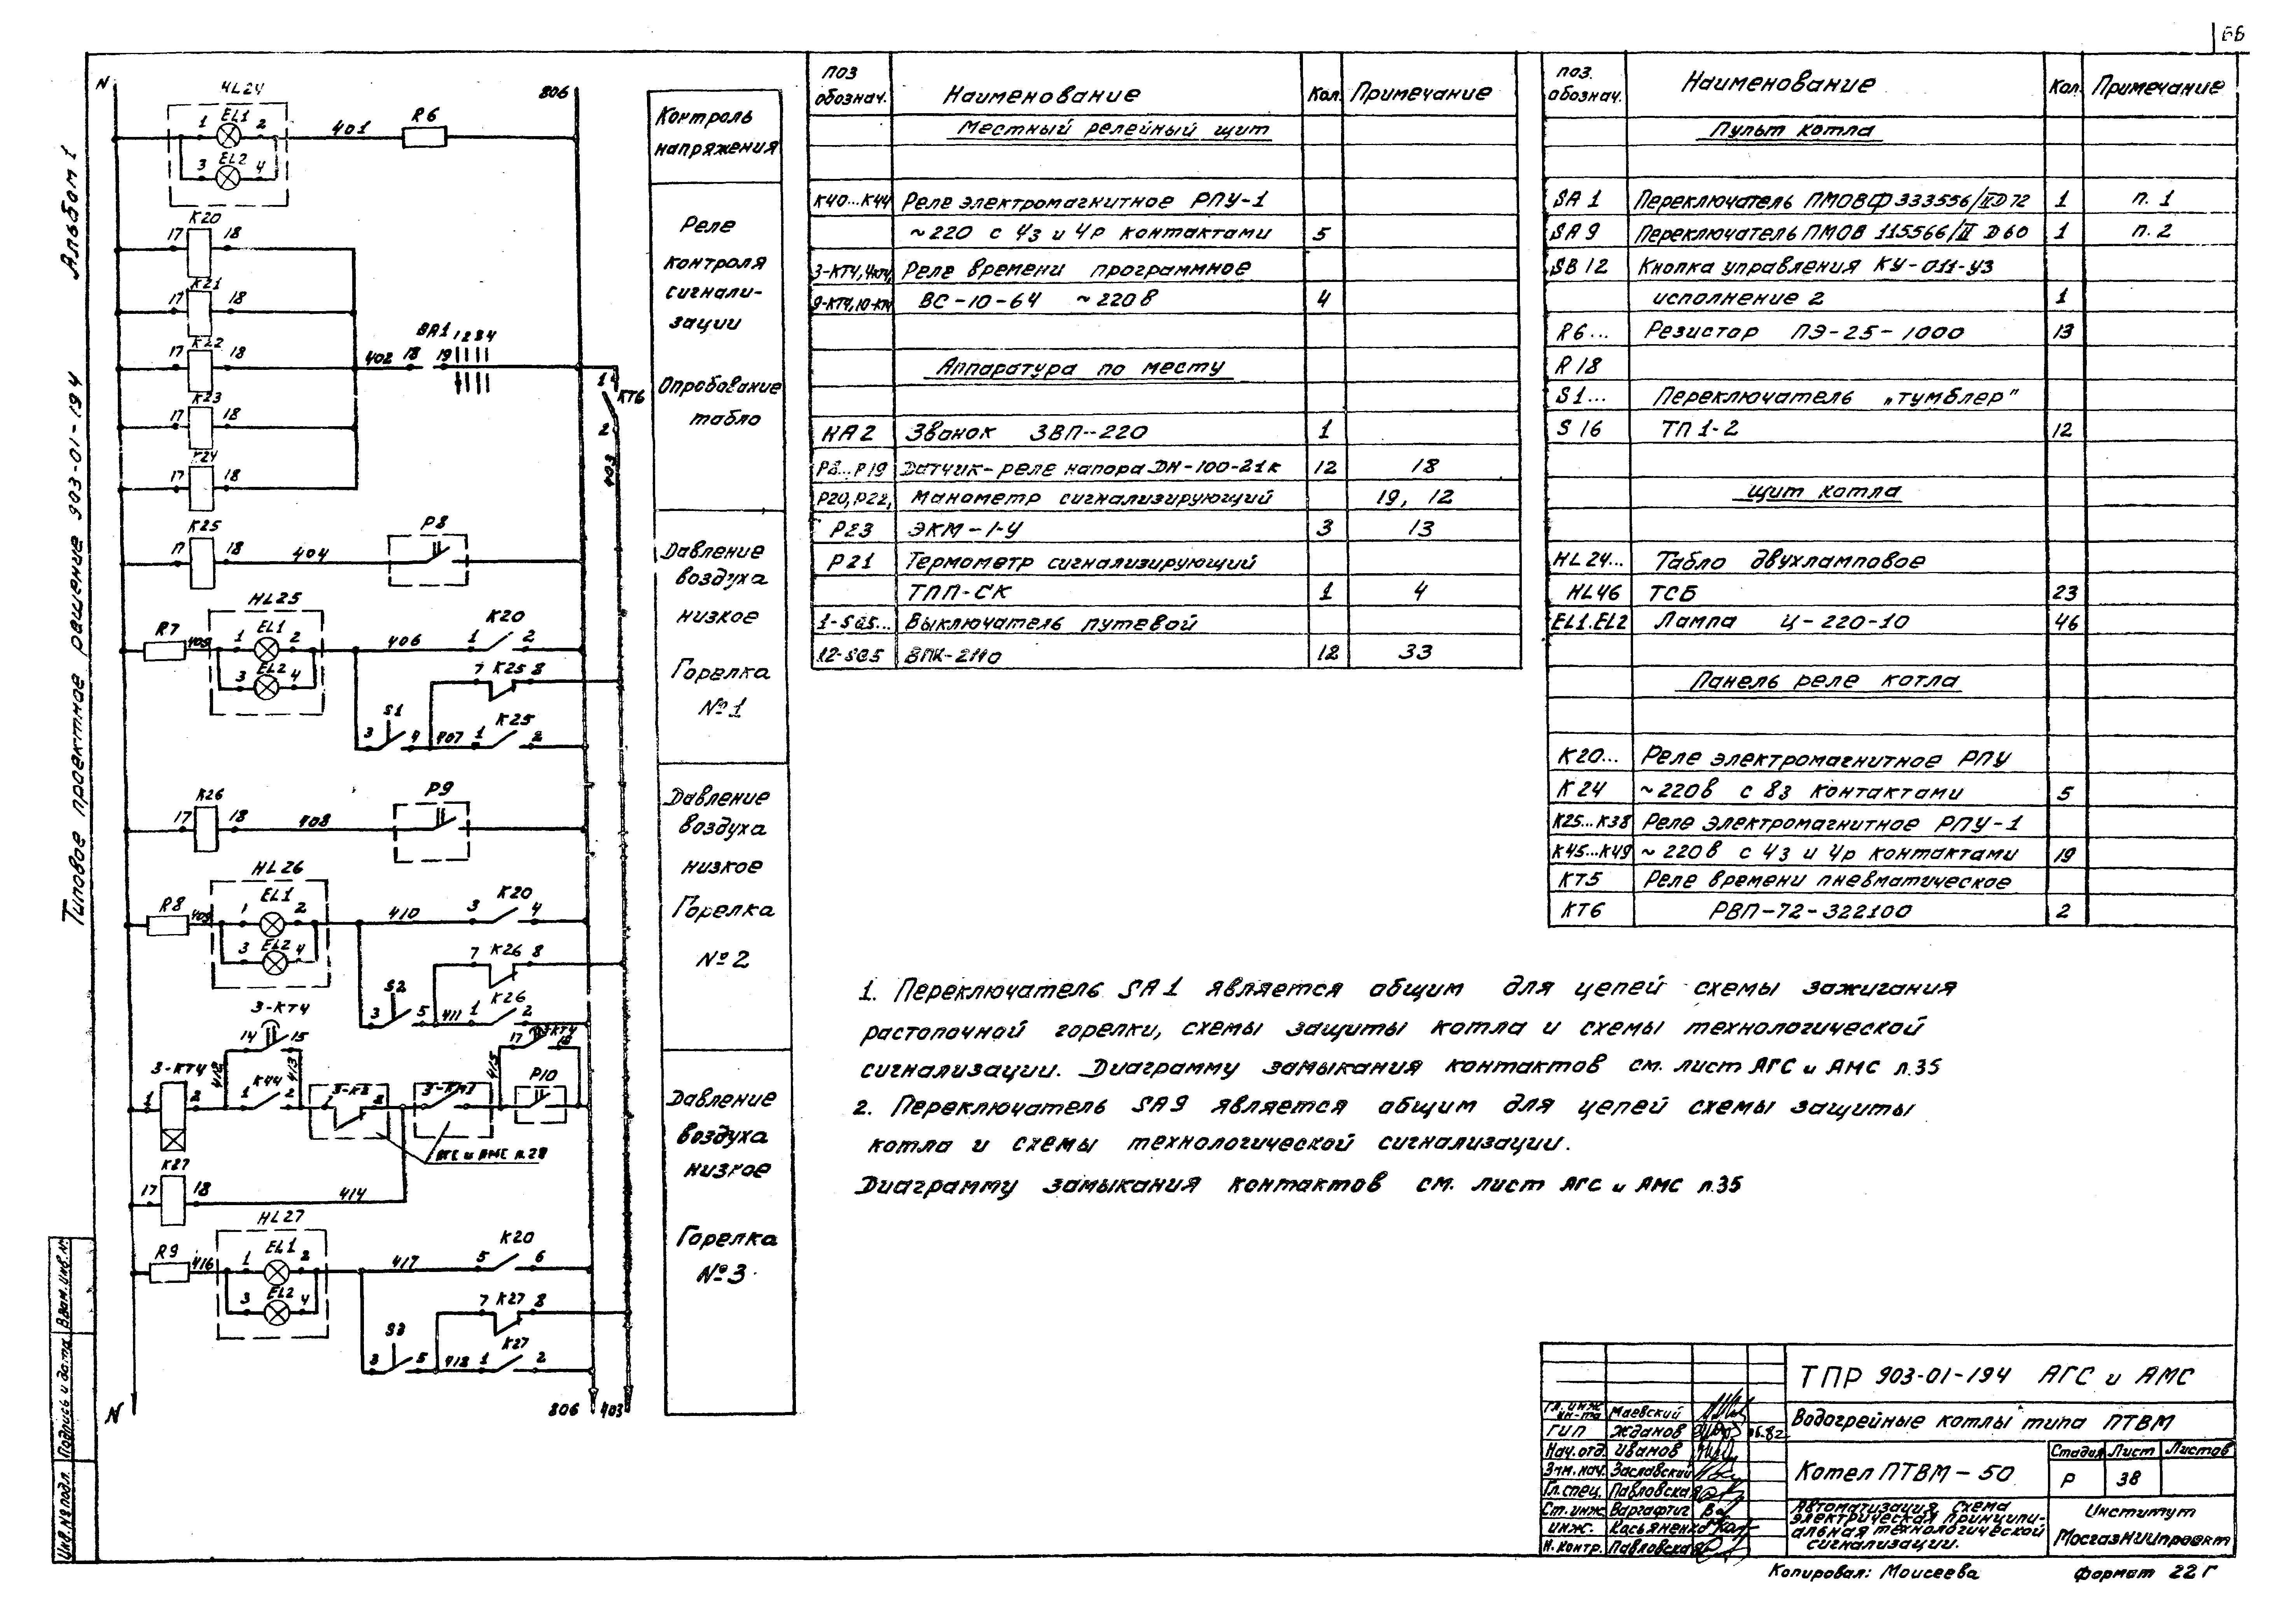 66
Альбом 1
Типовое проектное решение 903-01-194
N
HL24
806
1 EL1 2 401 R6
3 EL2 4
K20
17 18
K21
17 18
K22
17 18 402 18 SA1 19 1 2 3 4
K23
17 18
K24
17 18
1
KT6
2
403
K25
17 18 404 P8
HL25
R7 405 1 EL1 2 406 1 K20 2
3 EL2 4
7 K25 8
S1
3 4 407 1 K25 2
K26
17 18 408 P9
HL26
R8 409 1 EL1 2 410 3 K20 4
3 EL2 4
7 K26 8
S2
3 5 411 1 K26 2
3-KT4
14 15
3-KT4
17 18
412 413 415
3-KT4
1 2 1 K44 2
P10
АГС и АМС л.28
K27
17 18 414
HL27
R9 416 1 EL1 2 417 5 K20 6
3 EL2 4
7 K27 8
S3
3 5 418 1 K27 2
N
806 403
Контроль
напряжения
Реле
контроля
сигнали-
зации
Опробование
табло
Давление
воздуха
низкое
Горелка
№1
Давление
воздуха
низкое
Горелка
№2
Давление
воздуха
низкое
Горелка
№3
поз обознач. Наименование Кол. Примечание
Местный релейный щит
K40...K44 Реле электромагнитное РПУ-1
~220 с 4з и 4р контактами 5
3-KT4, 4-KT4, Реле времени программное
9-KT4, 10-KT4 ВС-10-64 ~220в 4
Аппаратура по месту
HA2 Звонок ЗВП-220 1
P8...P19 Датчик-реле напора ДН-100-21к 12 18
P20, P22, Манометр сигнализирующий 19, 12
P23 ЭКМ-1-У 3 13
P21 Термометр сигнализирующий
ТПП-СК 1 4
1-SQ5... Выключатель путевой
12-SQ5 ВПК-2110 12 33
поз. обознач. Наименование Кол. Примечание
Пульт котла
SA1 Переключатель ПМОВФ 333556/II Д72 1 п. 1
SA9 Переключатель ПМОВ 115566/II Д60 1 п. 2
SB12 Кнопка управления КУ-011-У3
исполнение 2 1
R6... Резистор ПЭ-25-1000 13
R18
S1... Переключатель „тумблер"
S16 ТП1-2 12
Щит котла
HL24... Табло двухламповое
HL46 ТСБ 23
EL1.EL2 Лампа Ц-220-10 46
Панель реле котла
K20... Реле электромагнитное РПУ
K24 ~220в с 8з контактами 5
K25...K38 Реле электромагнитное РПУ-1
K45...K49 ~220в с 4з и 4р контактами 19
KT5 Реле времени пневматическое
KT6 РВП-72-322100 2
1. Переключатель SA1 является общим для цепей схемы зажигания
растопочной горелки, схемы защиты котла и схемы технологической
сигнализации. Диаграмму замыкания контактов см. лист АГС и АМС л.35
2. Переключатель SA9 является общим для цепей схемы защиты
котла и схемы технологической сигнализации.
Диаграмму замыкания контактов см. лист АГС и АМС л.35
ТПР 903-01-194 АГС и АМС
Водогрейные котлы типа ПТВМ
Гл. инж. ин-та Маевский
ГИП Жданов
Нач. отд. Иванов
Зам. нач. Заславский
Гл. спец. Павловская
Ст. инж. Варгафтиг
инж. Касьяненко
Н. контр. Павловская
Котел ПТВМ-50
Стадия Лист Листов
Р 38
Автоматизация. Схема
электрическая принципи-
альная технологической
сигнализации.
Институт
МосгазНИИпроект
Копировал: Моисеева Формат 22Г
Инв.№ подл. Подпись и дата Взам. инв.№